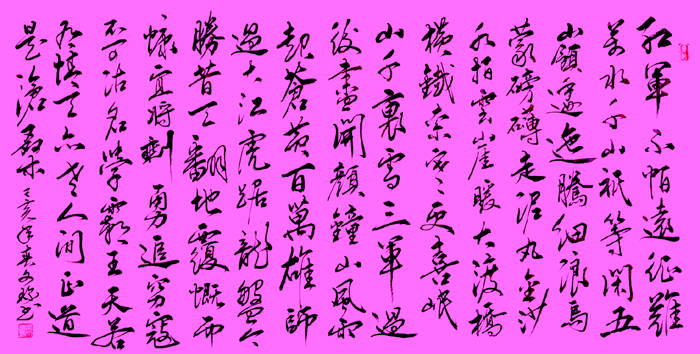 紅軍不怕遠征難
萬水千山祇等閑五
嶺逶迤騰細浪烏
蒙磅礴走泥丸金沙
水拍雲崖暖大渡橋
橫鐵索寒更喜岷
山千裏雪三軍過
後盡開顏鐘山風雨
起蒼黃百萬雄師
過大江虎踞龍盤今
勝昔天翻地覆慨而
慷宜將剩勇追窮寇
不可沽名學霸王天若
有情天亦老人間正道
是滄桑